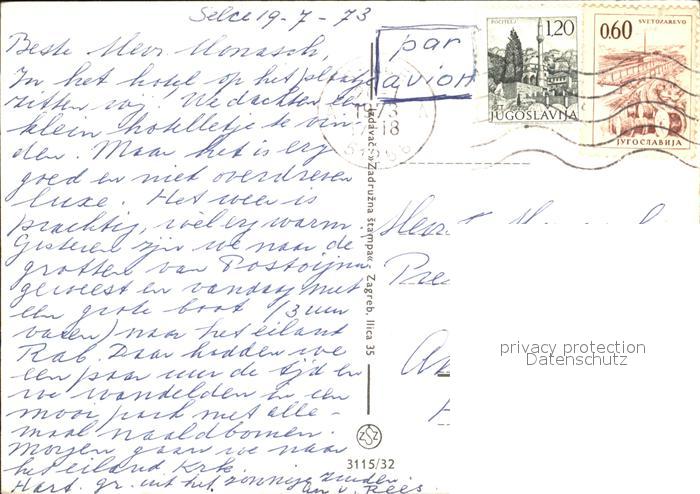 Selce 19-7-73
Beste Meneer Monasch
In het hotel op het plaatje
zitten wij! We dachten een
klein hotelletje te vin-
den. Maar het is erg
goed en niet overdreven
luxe. Het weer is
prachtig, wel erg warm.
Gisteren zijn we naar de
grotten van Postojna
geweest en vandaag met
een grote boot (3 uur
varen) naar het eiland
Rab. Daar hadden we
een paar uur de tijd en
we wandelden in een
mooi park met alle-
maal naaldbomen.
Morgen gaan we naar
het eiland Krk.
Hart. gr. uit het zonnige zuiden
An v. Rees.
par
avion
POČITELJ
1,20
JUGOSLAVIJA
SVETOZAREVO
0.60
ЈУГОСЛАВИЈА
1973
18
Izdavač: »Zadružna štampa«, Zagreb, Ilica 35
ZSZ
3115/32
privacy protection
Datenschutz